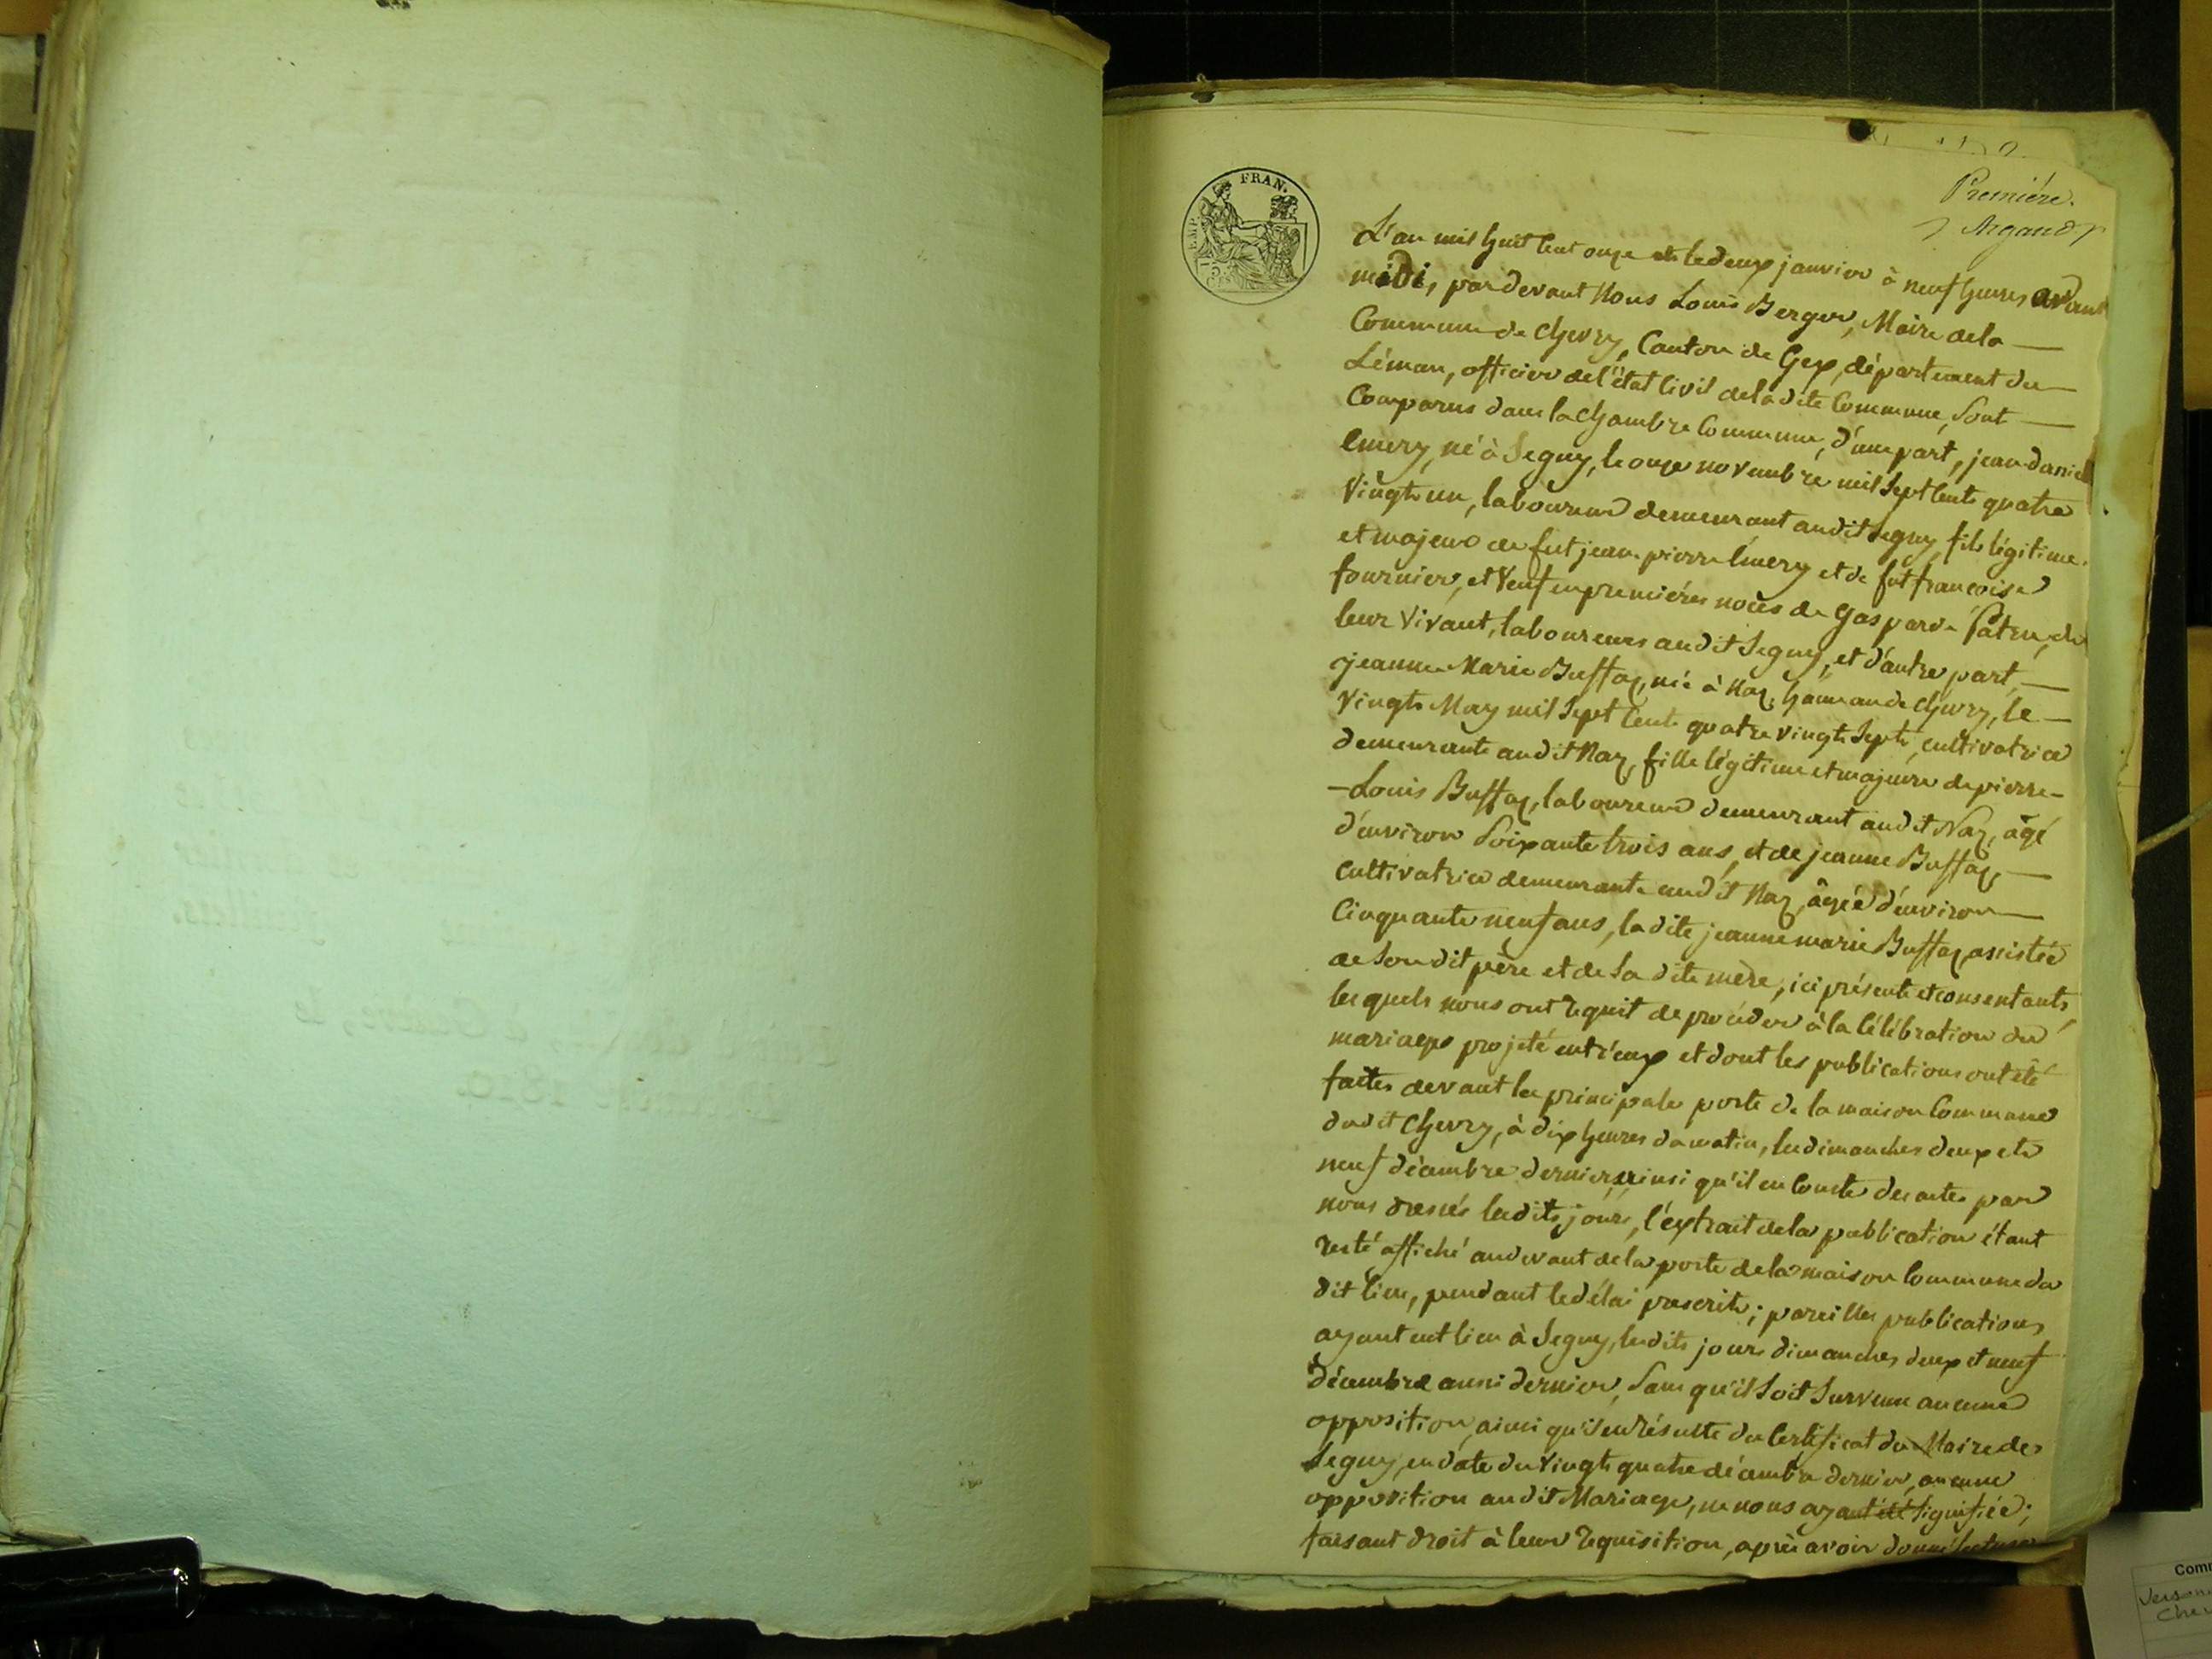 Premiére.
Argand
EMP. FRAN.
L'an mil huit cent onze et le deux janvier à neuf heures avant
midi, pardevant Nous Louis Berger, Maire de la
Commune de Chevry, Canton de Gex, département du
Léman, officier de l'état Civil de la dite Commune, sont
Comparus dans la chambre Commune, d'une part, jean-daniel
Emery, né à Segny, le onze novembre mil sept cents quatre
vingt un, laboureur demeurant audit Segny, fils légitime
et majeur de fut jean-pierre Emery et de fut françoise
fournier, et Veuf en premiéres noces de gasparde
leur vivant, laboureurs audit Segny, et d'autre part
jeanne Marie Buffaz, née à Naz, hameau de Chevry, le
vingt May mil sept cents quatre vingt sept, cultivatrice
demeurante audit Naz, fille légitime et majeure de pierre-
-Louis Buffaz, laboureur demeurant audit Naz, âgé
d'environ soixante trois ans, et de jeanne Buffaz
cultivatrice demeurante audit Naz, âgée d'environ
Cinquante neuf ans, la dite jeanne marie Buffaz assistée
de son dit père et de sa dite mère, ici présents et consentants,
lesquels nous ont requit de procéder à la célébration du
mariage projeté entr'eux et dont les publications ont été
faites devant la principale porte de la maison Commune
dudit Chevry, à dix heures du matin, les dimanches deux et
neuf décembre dernier, ainsi qu'il en Conste des actes par
nous dressés lesdits jours, l'extrait de la publication étant
resté affiché au devant de la porte de la maison Commune du
dit lieu, pendant le délai prescrit; pareilles publications
ayant eut lieu à Segny, lesdits jours dimanches deux et neuf
décembre aussi dernier, sans qu'il soit survenu aucune
opposition, ainsi qu'il en résulte du Certificat du Maire de
Segny, en date du vingt quatre décembre dernier, aucune
opposition audit Mariage, ne nous ayant été signifiée;
faisant droit à leur requisition, après avoir donné lecture
feuillets.
à Genève, le
1810.
Com
Che